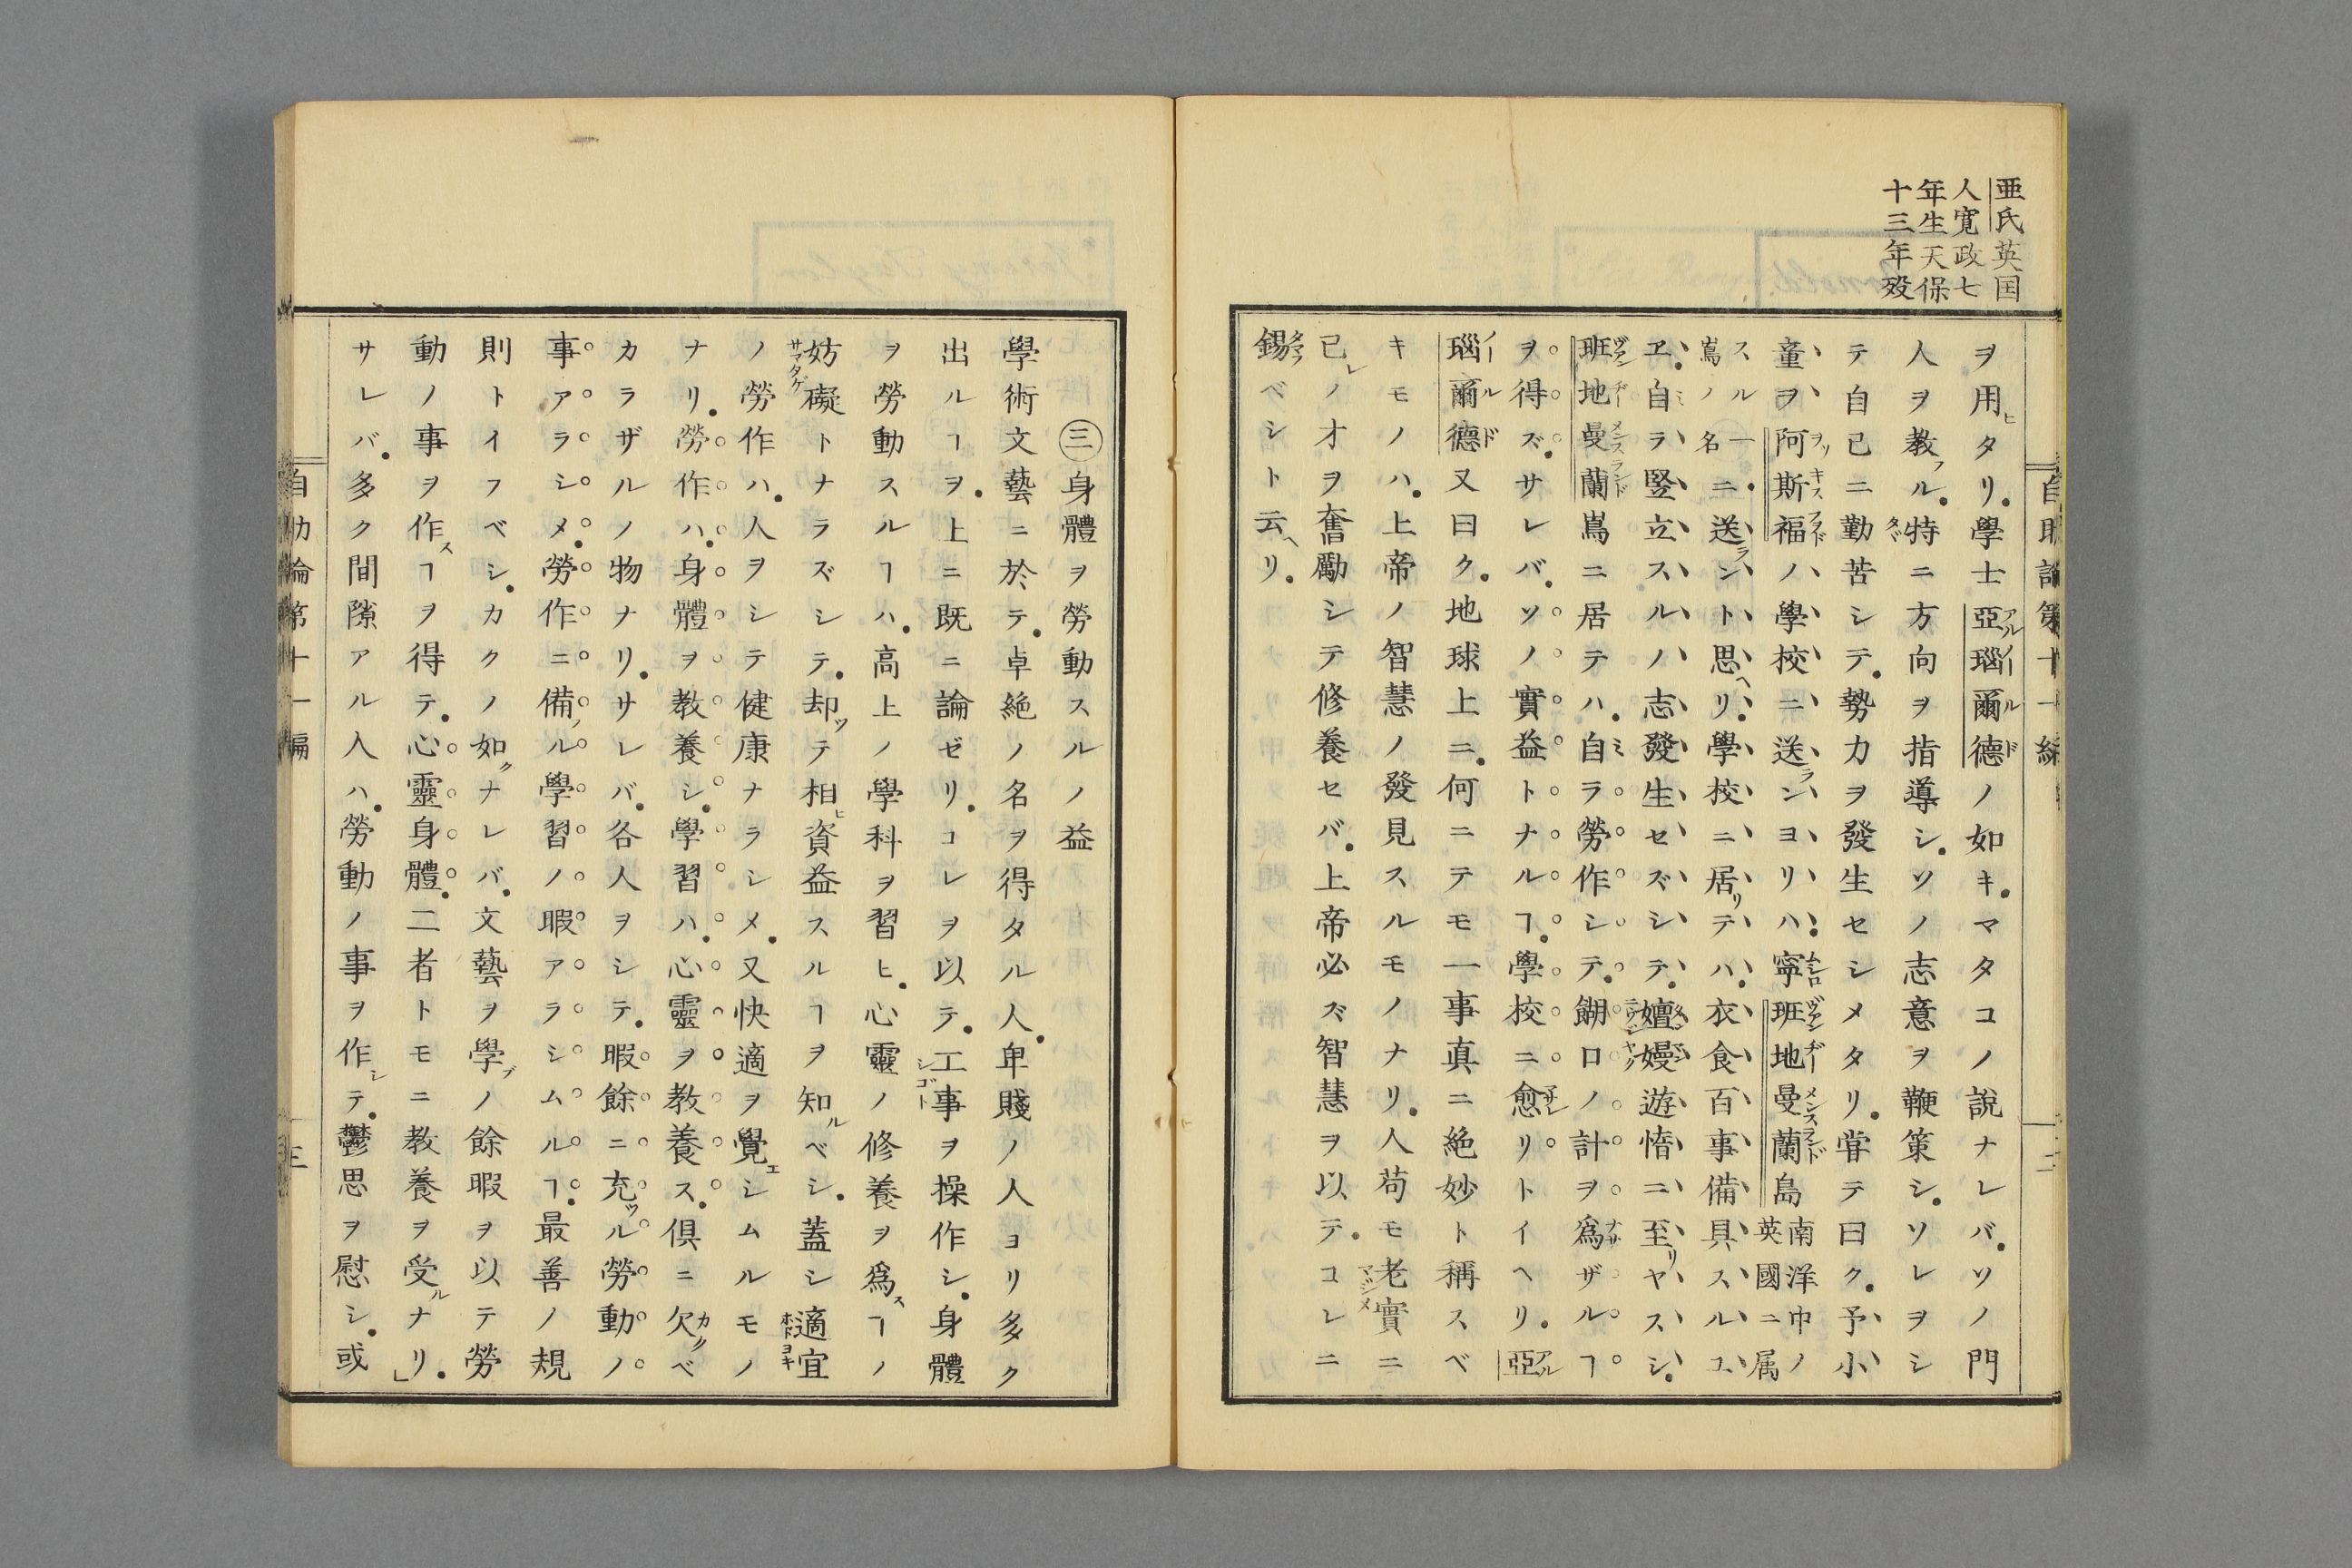 亜氏英国
人寛政七
年生天保
十三年歿
ヲ用ヒタリ。學士亞瑙爾德ノ如キ。マタコノ說ナレバ。ソノ門
人ヲ教フル。特ニ方向ヲ指導シ。ソノ志意ヲ鞭策シ。ソレヲシ
テ自己ニ勤苦シテ。勢力ヲ發生セシメタリ。甞テ曰ク。予小
童ヲ阿斯福ノ學校ニ送ランヨリハ。寧班地曼蘭島南洋中ノ英國ニ属
スル一嶌ノ名ニ送ラント思ヘリ。學校ニ居リテハ。衣食百事備具スルユ
ヱ。自ラ竪立スルノ志發生セズシテ。嬗嫚遊惰ニ至リヤスシ。
班地曼蘭嶌ニ居テハ。自ラ勞作シテ。餬口ノ計ヲ為サザルヿ
ヲ得ズ。サレバ。ソノ實益トナルヿ。學校ニ愈レリトイヘリ。亞
瑙爾德又曰ク。地球上ニ。何ニテモ一事真ニ絶妙ト稱スベ
キモノハ。上帝ノ智慧ノ發見スルモノナリ。人苟モ老實ニ
己レノ才ヲ奮勵シテ修養セバ。上帝必ズ智慧ヲ以テ。コレニ
錫ベシト云ヘリ。
㊂身體ヲ勞動スルノ益
學術文藝ニ於テ。卓絶ノ名ヲ得タル人。卑賤ノ人ヨリ多ク
出ルヿヲ。上ニ既ニ論ゼリ。コレヲ以テ。工事ヲ操作シ。身體
ヲ勞動スルヿハ。高上ノ學科ヲ習ヒ。心靈ノ修養ヲ為スヿノ
妨礙トナラズシテ。却ツテ相ヒ資益スルヿヲ知ルベシ。蓋シ適宜
ノ勞作ハ。人ヲシテ健康ナラシメ。又快適ヲ覺エシムルモノ
ナリ。勞作ハ。身體ヲ教養シ。學習ハ。心靈ヲ教養ス。倶ニ欠クベ
カラザルノ物ナリ。サレバ。各人ヲシテ。暇餘ニ充ツル勞動ノ
事アラシメ。勞作ニ備ノル學習ノ暇アラシムルヿ。最善ノ規
則トイフベシ。カクノ如クナレバ。文藝ヲ學ブノ餘暇ヲ以テ勞
動ノ事ヲ作スヿヲ得テ。心靈身體。二者トモニ教養ヲ受ルナリ。」
サレバ。多ク間隙アル人ハ。勞動ノ事ヲ作シテ。鬱思ヲ慰シ。或
自助論第十一編
三